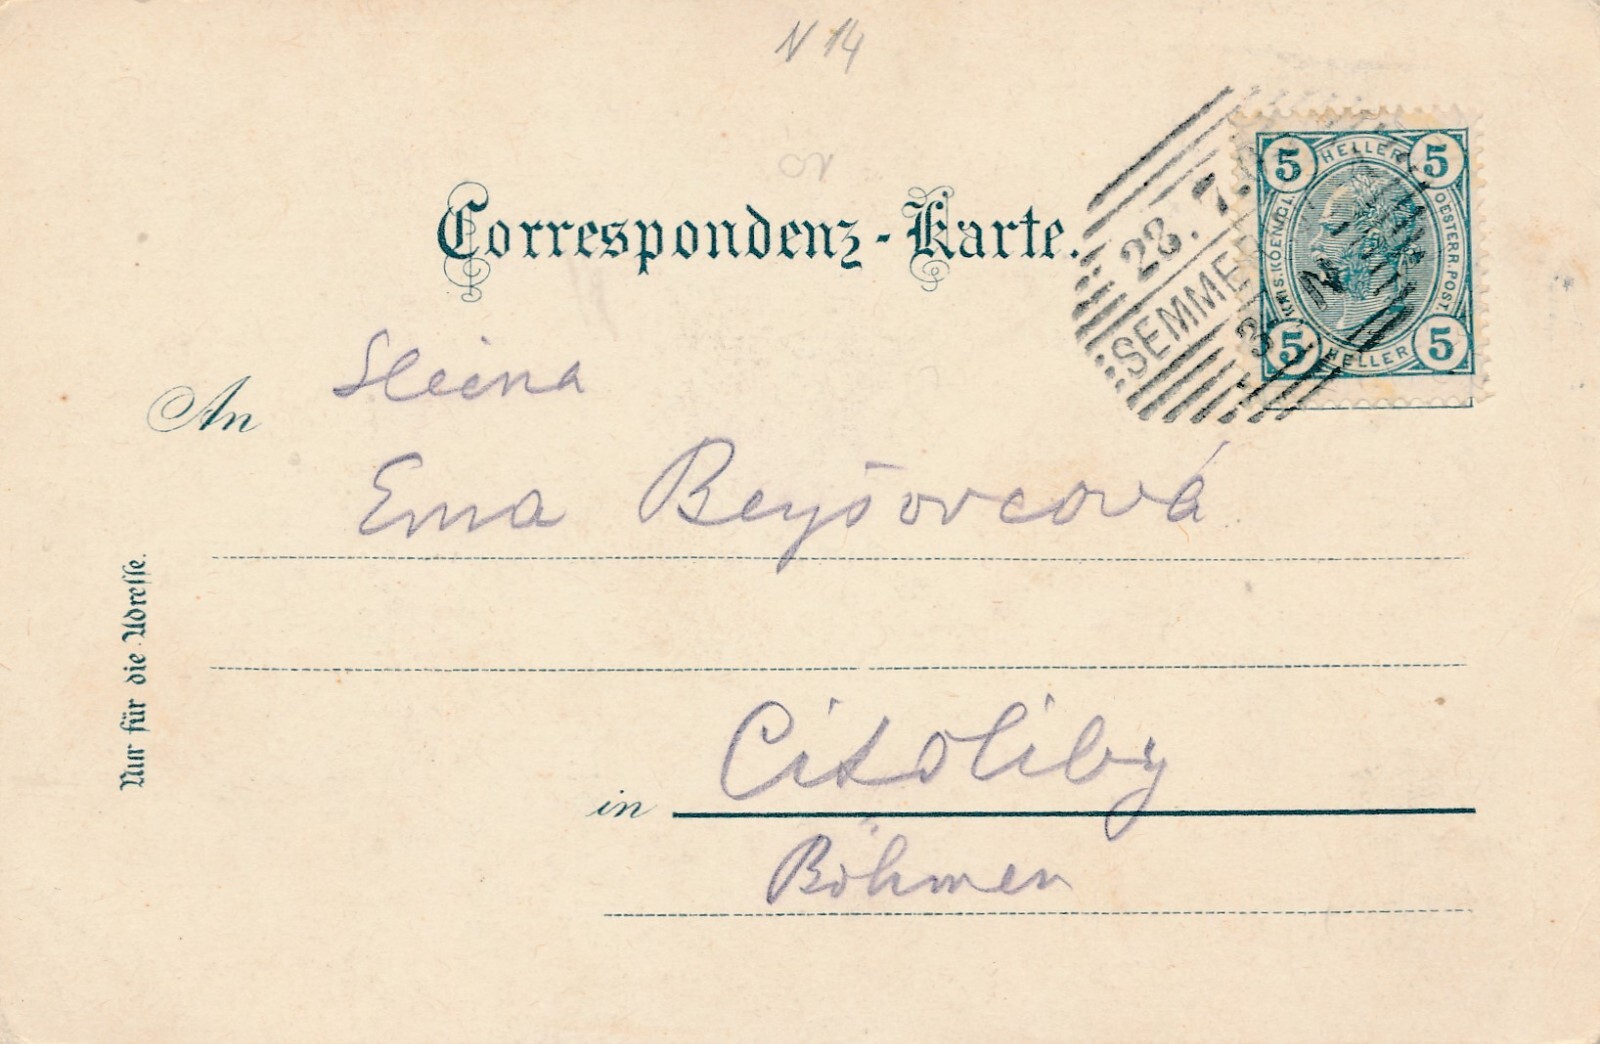 N 14
Correspondenz-Karte.
28. 7.
SEMMER
3
N
5 HELLER 5
KAIS. KOENIGL. OESTERR. POST.
5 HELLER 5
An Slečna
Ema Beyšovcová
in Citoliby
Böhmen
Nur für die Adresse.